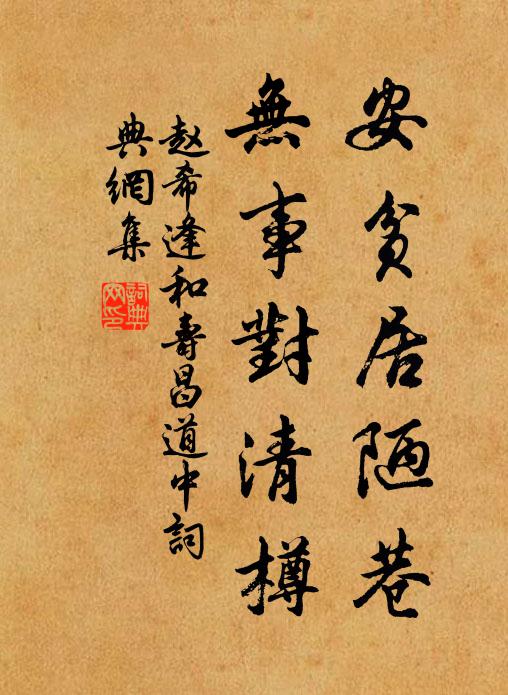 安貧居陋巷
無事對清樽
赵希逢和壽昌道中詞
典網集
詞典網印